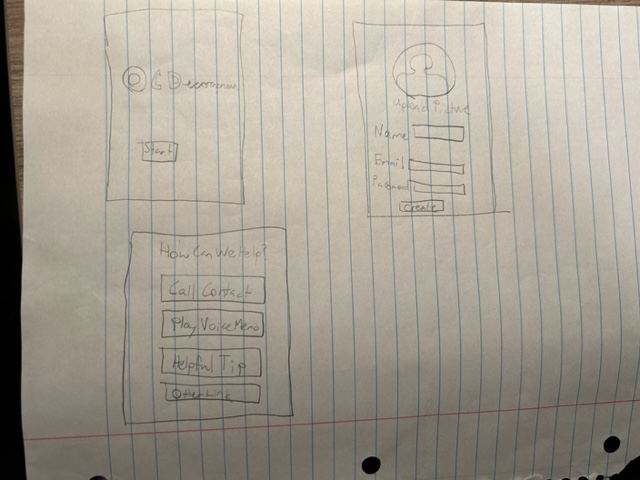 Start
Upload Picture
Name
Email
Password
Create
How Can We Help?
Call Contact
Play Voice Memo
Helpful Tip
Other Link